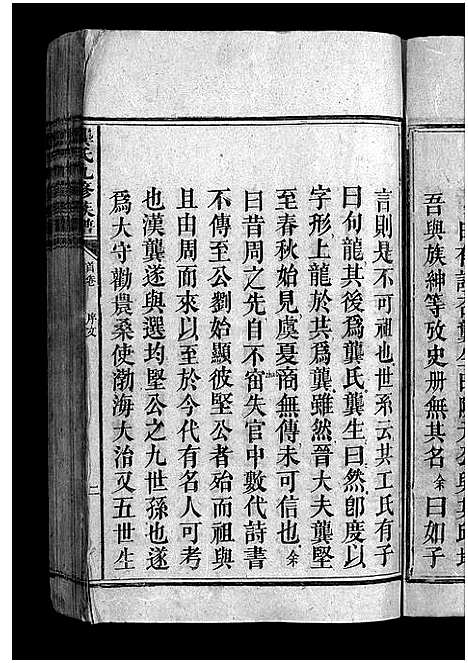 吾與族紳等攷史册無其名余曰如子
言則是不可祖也世系云共工氏有子
曰句龍其後爲龔氏龔生曰然卽度以
字形上龍於共爲龔雖然晉大夫龔堅
至春秋始見虞夏商無傳未可信也余
曰昔周之先自不窋失官中數代詩書
不傳至公劉始顯彼堅公者殆而祖與
且由周而來以至於今代有名人可考
也漢龔遂與選均堅公之九世孫也遂
爲大守勸農桑使渤海大治又五世生
龔氏九修族譜
首卷 序文 二